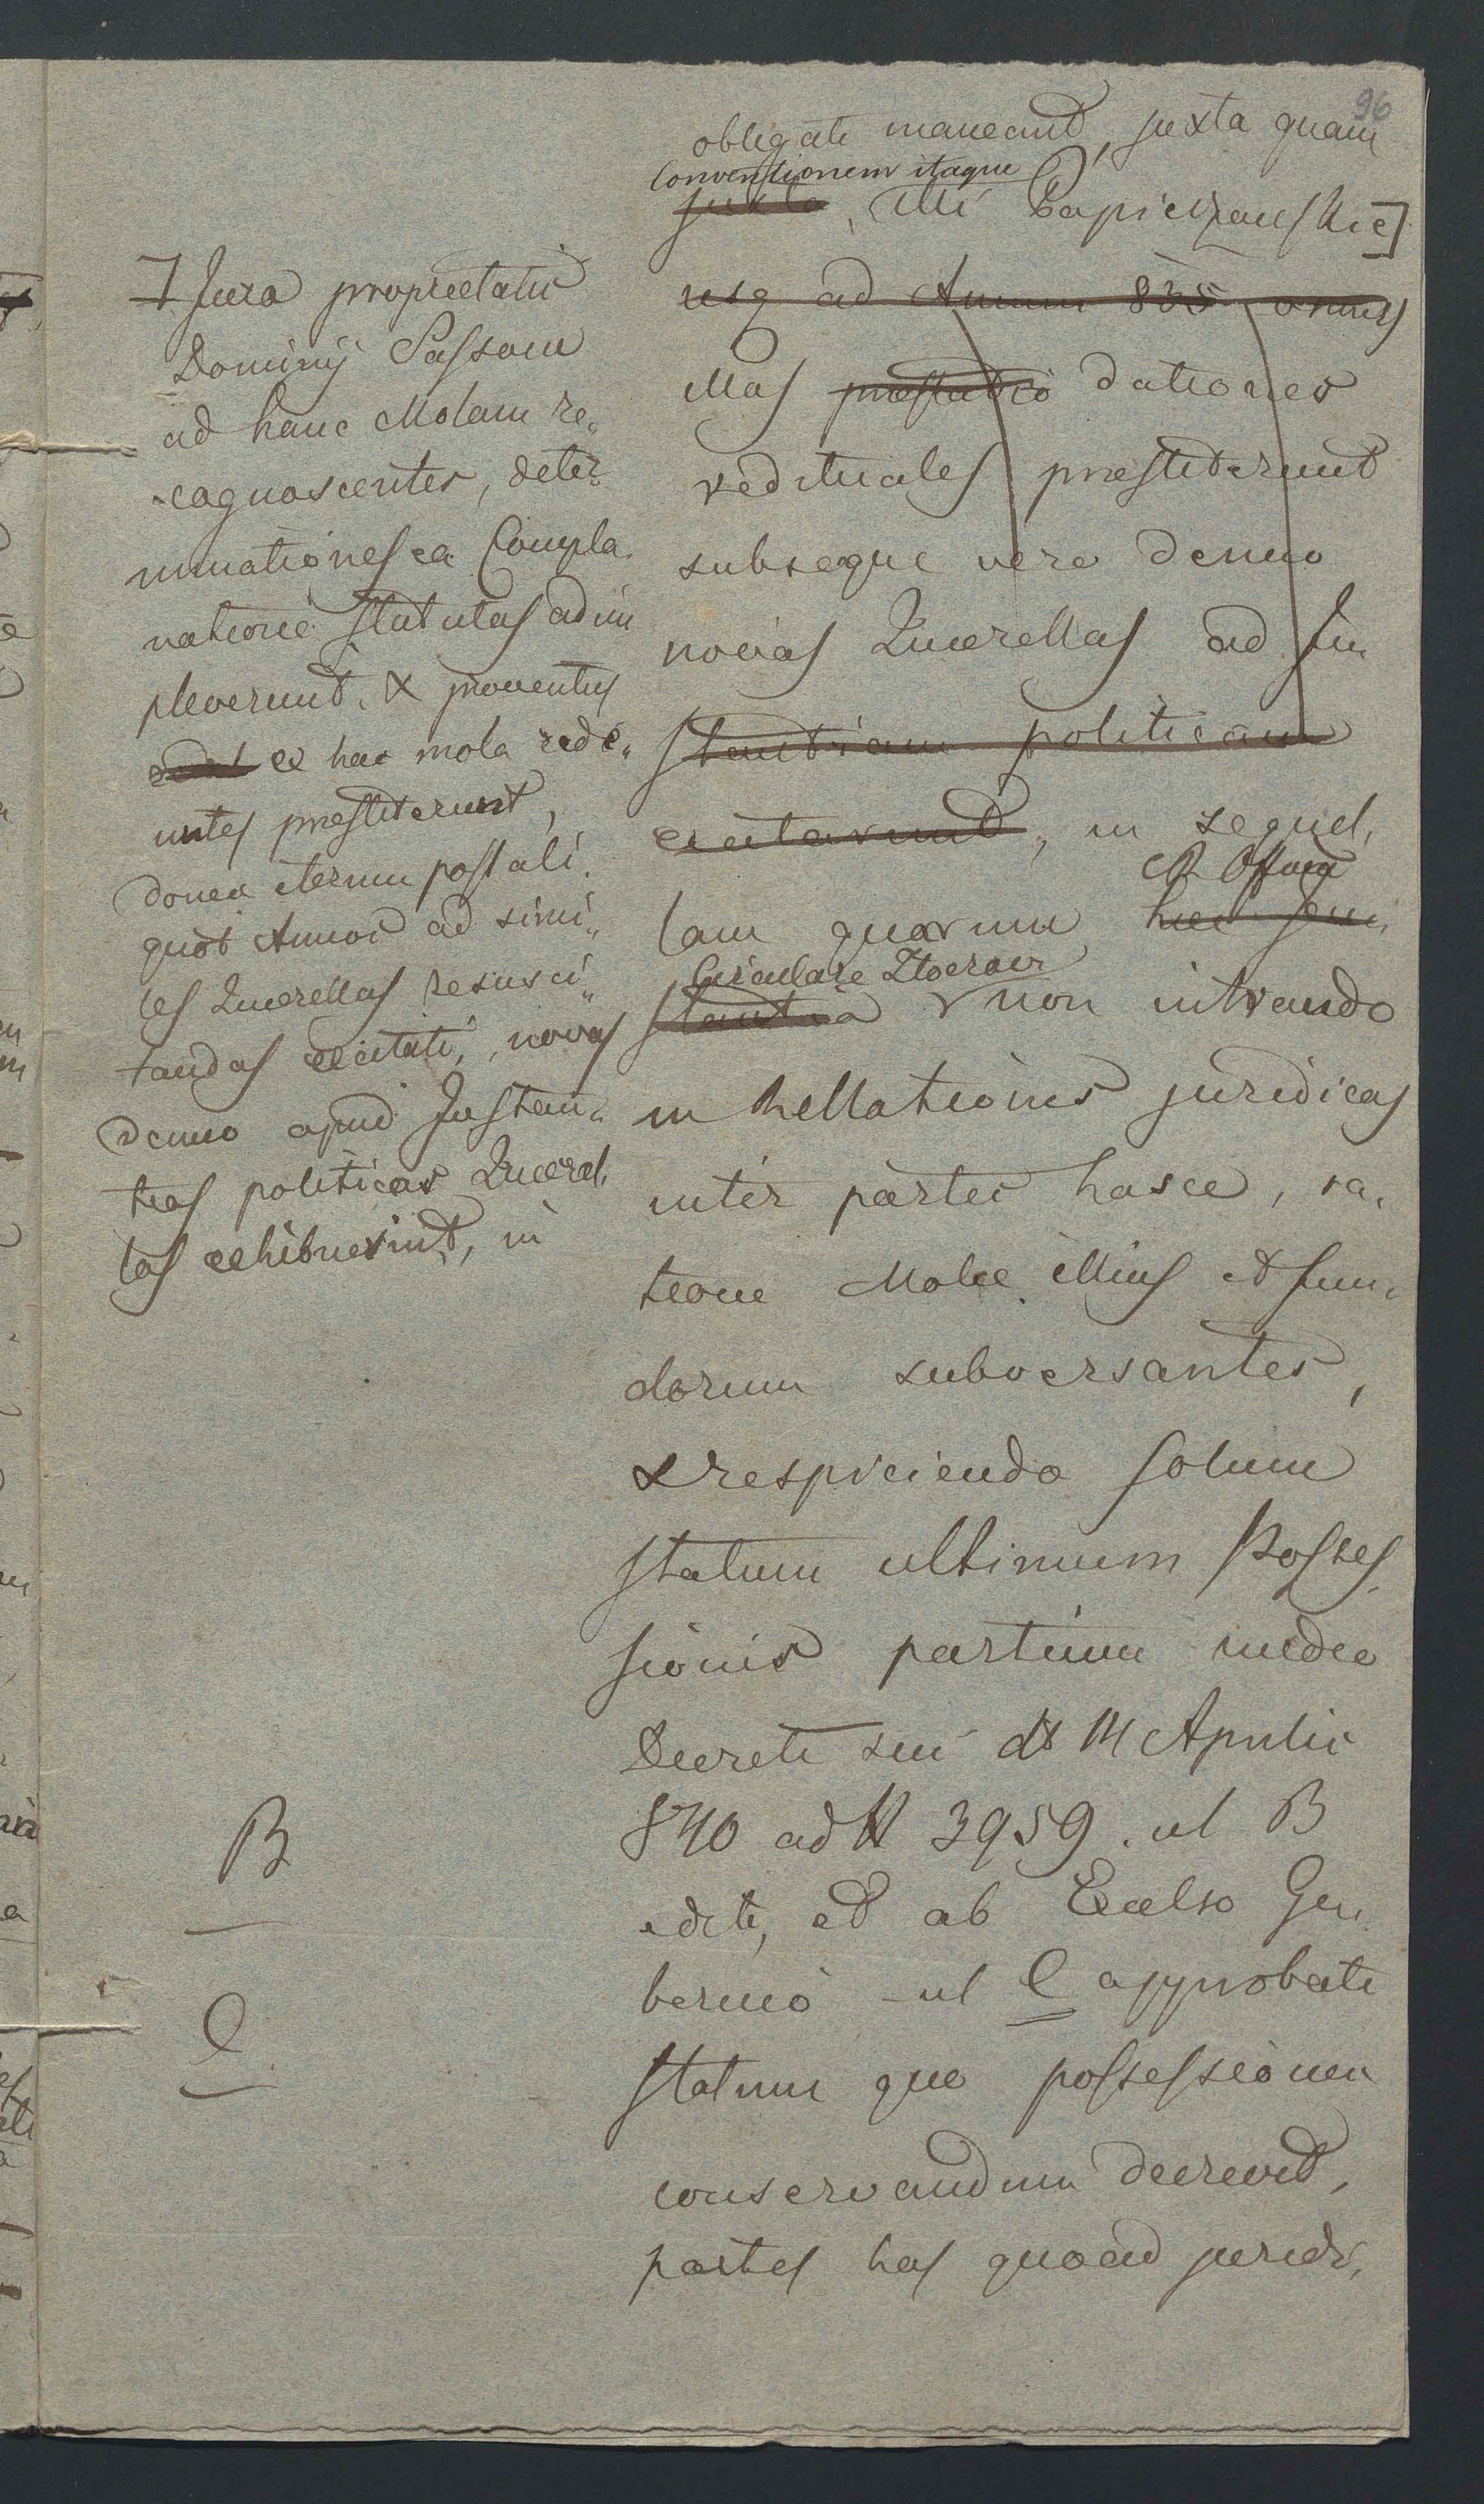 96
obligati maneant, juxta quam
Conventionem itaque
juxta, illi Papierzanskie]
usq ad Annum 835 omnes
illas praestatio dationes
redituales praestiterunt
subseque vero denuo
novas Querellas ad In
stantiam politicam
excitarunt, in sequel,
C. R. Officiu
lam quarum haec In,
Circulare Zloczow
stantia non intrando
in Rellationes juridicas
inter partes hasce, ra,
tione Molae illius et fun,
dorum subversantes,
& respiciendo solum
statum ultimum Posses,
sionis partium medio
Decreti sui dt 14 Aprilis
840 ad N 3959. ul B
editi, et ab Excelso Gu
bernio ul C approbati
statum quo possessionem
conservandum decrevit,
partes has quoad juridi,
7. Jura proprietatis
Dominij Sassow
ad hanc Molam re,,
cognoscentes, deter
minationes ea Compla
natione statutas adim
pleverunt, & proventus
ex hac mola rede,,
untes praestiterunt,
donec iterum post ali
quot Annos ad simi,,
les Querellas resusci,,
tandas excitati, novas
denuo apud Instan,,
tias politicas Querel,
las exhibuerint, in
B
C